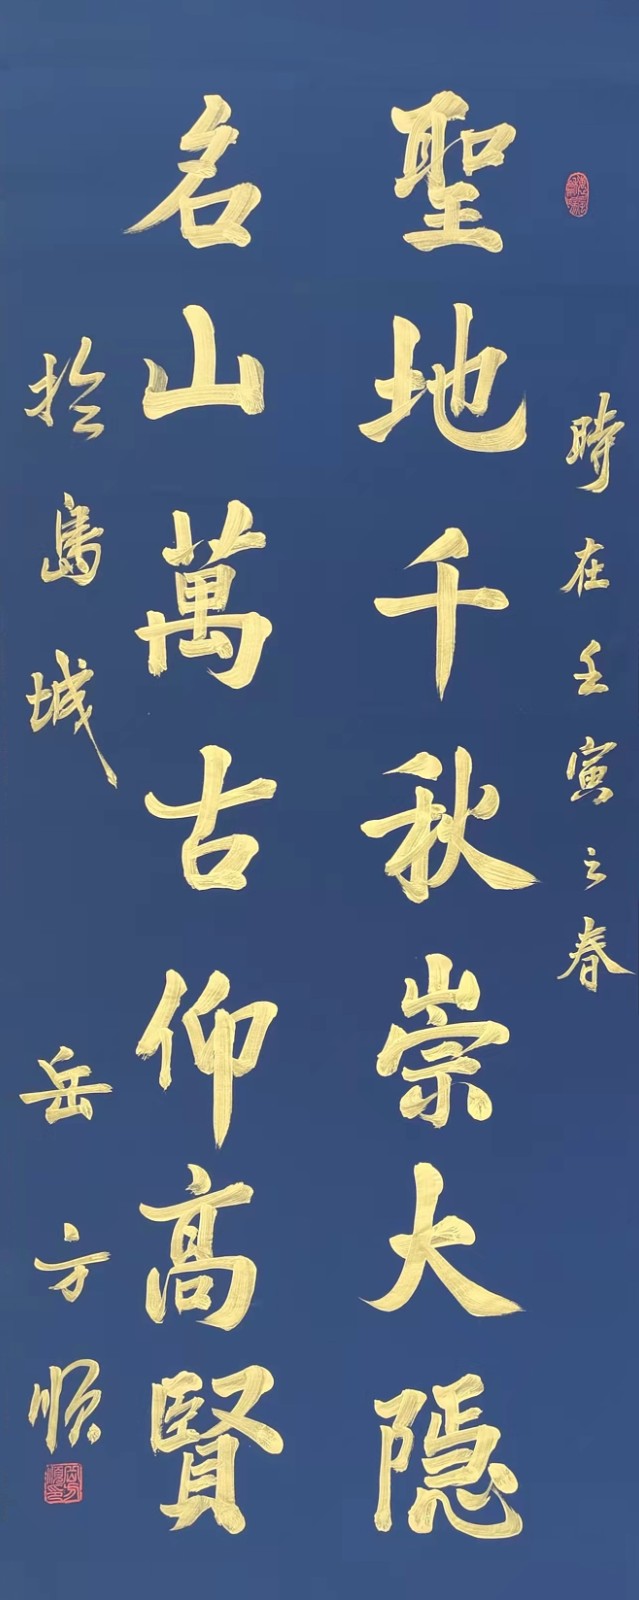 時在壬寅之春
聖地千秋崇大隱
名山萬古仰高賢
於島城
岳方順